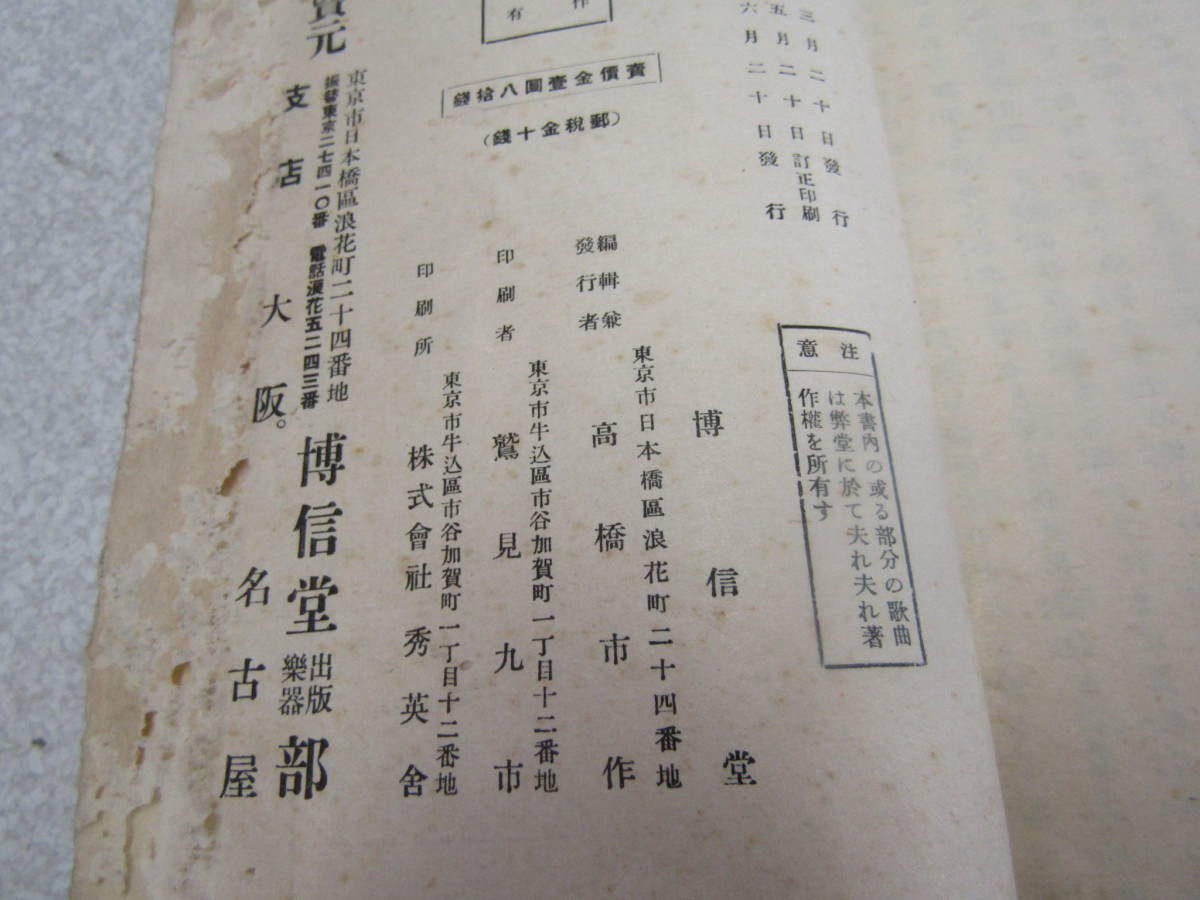 三月二十日發行
五月二十日訂正印刷
六月二十日發行
注意
本書內の或る部分の歌曲
は弊堂に於て夫れ夫れ著
作權を所有す
作
有
賣價金壹圓八拾錢
(郵稅金十錢)
博信堂
東京市日本橋區浪花町二十四番地
編輯兼
發行者
高橋市作
東京市牛込區市谷加賀町一丁目十二番地
印刷者
鷲見九市
東京市牛込區市谷加賀町一丁目十二番地
印刷所
株式會社秀英舍
東京市日本橋區浪花町二十四番地
振替東京二七四一〇番 電話浪花五二四三番
賣元
博信堂出版樂器部
支店 大阪。名古屋